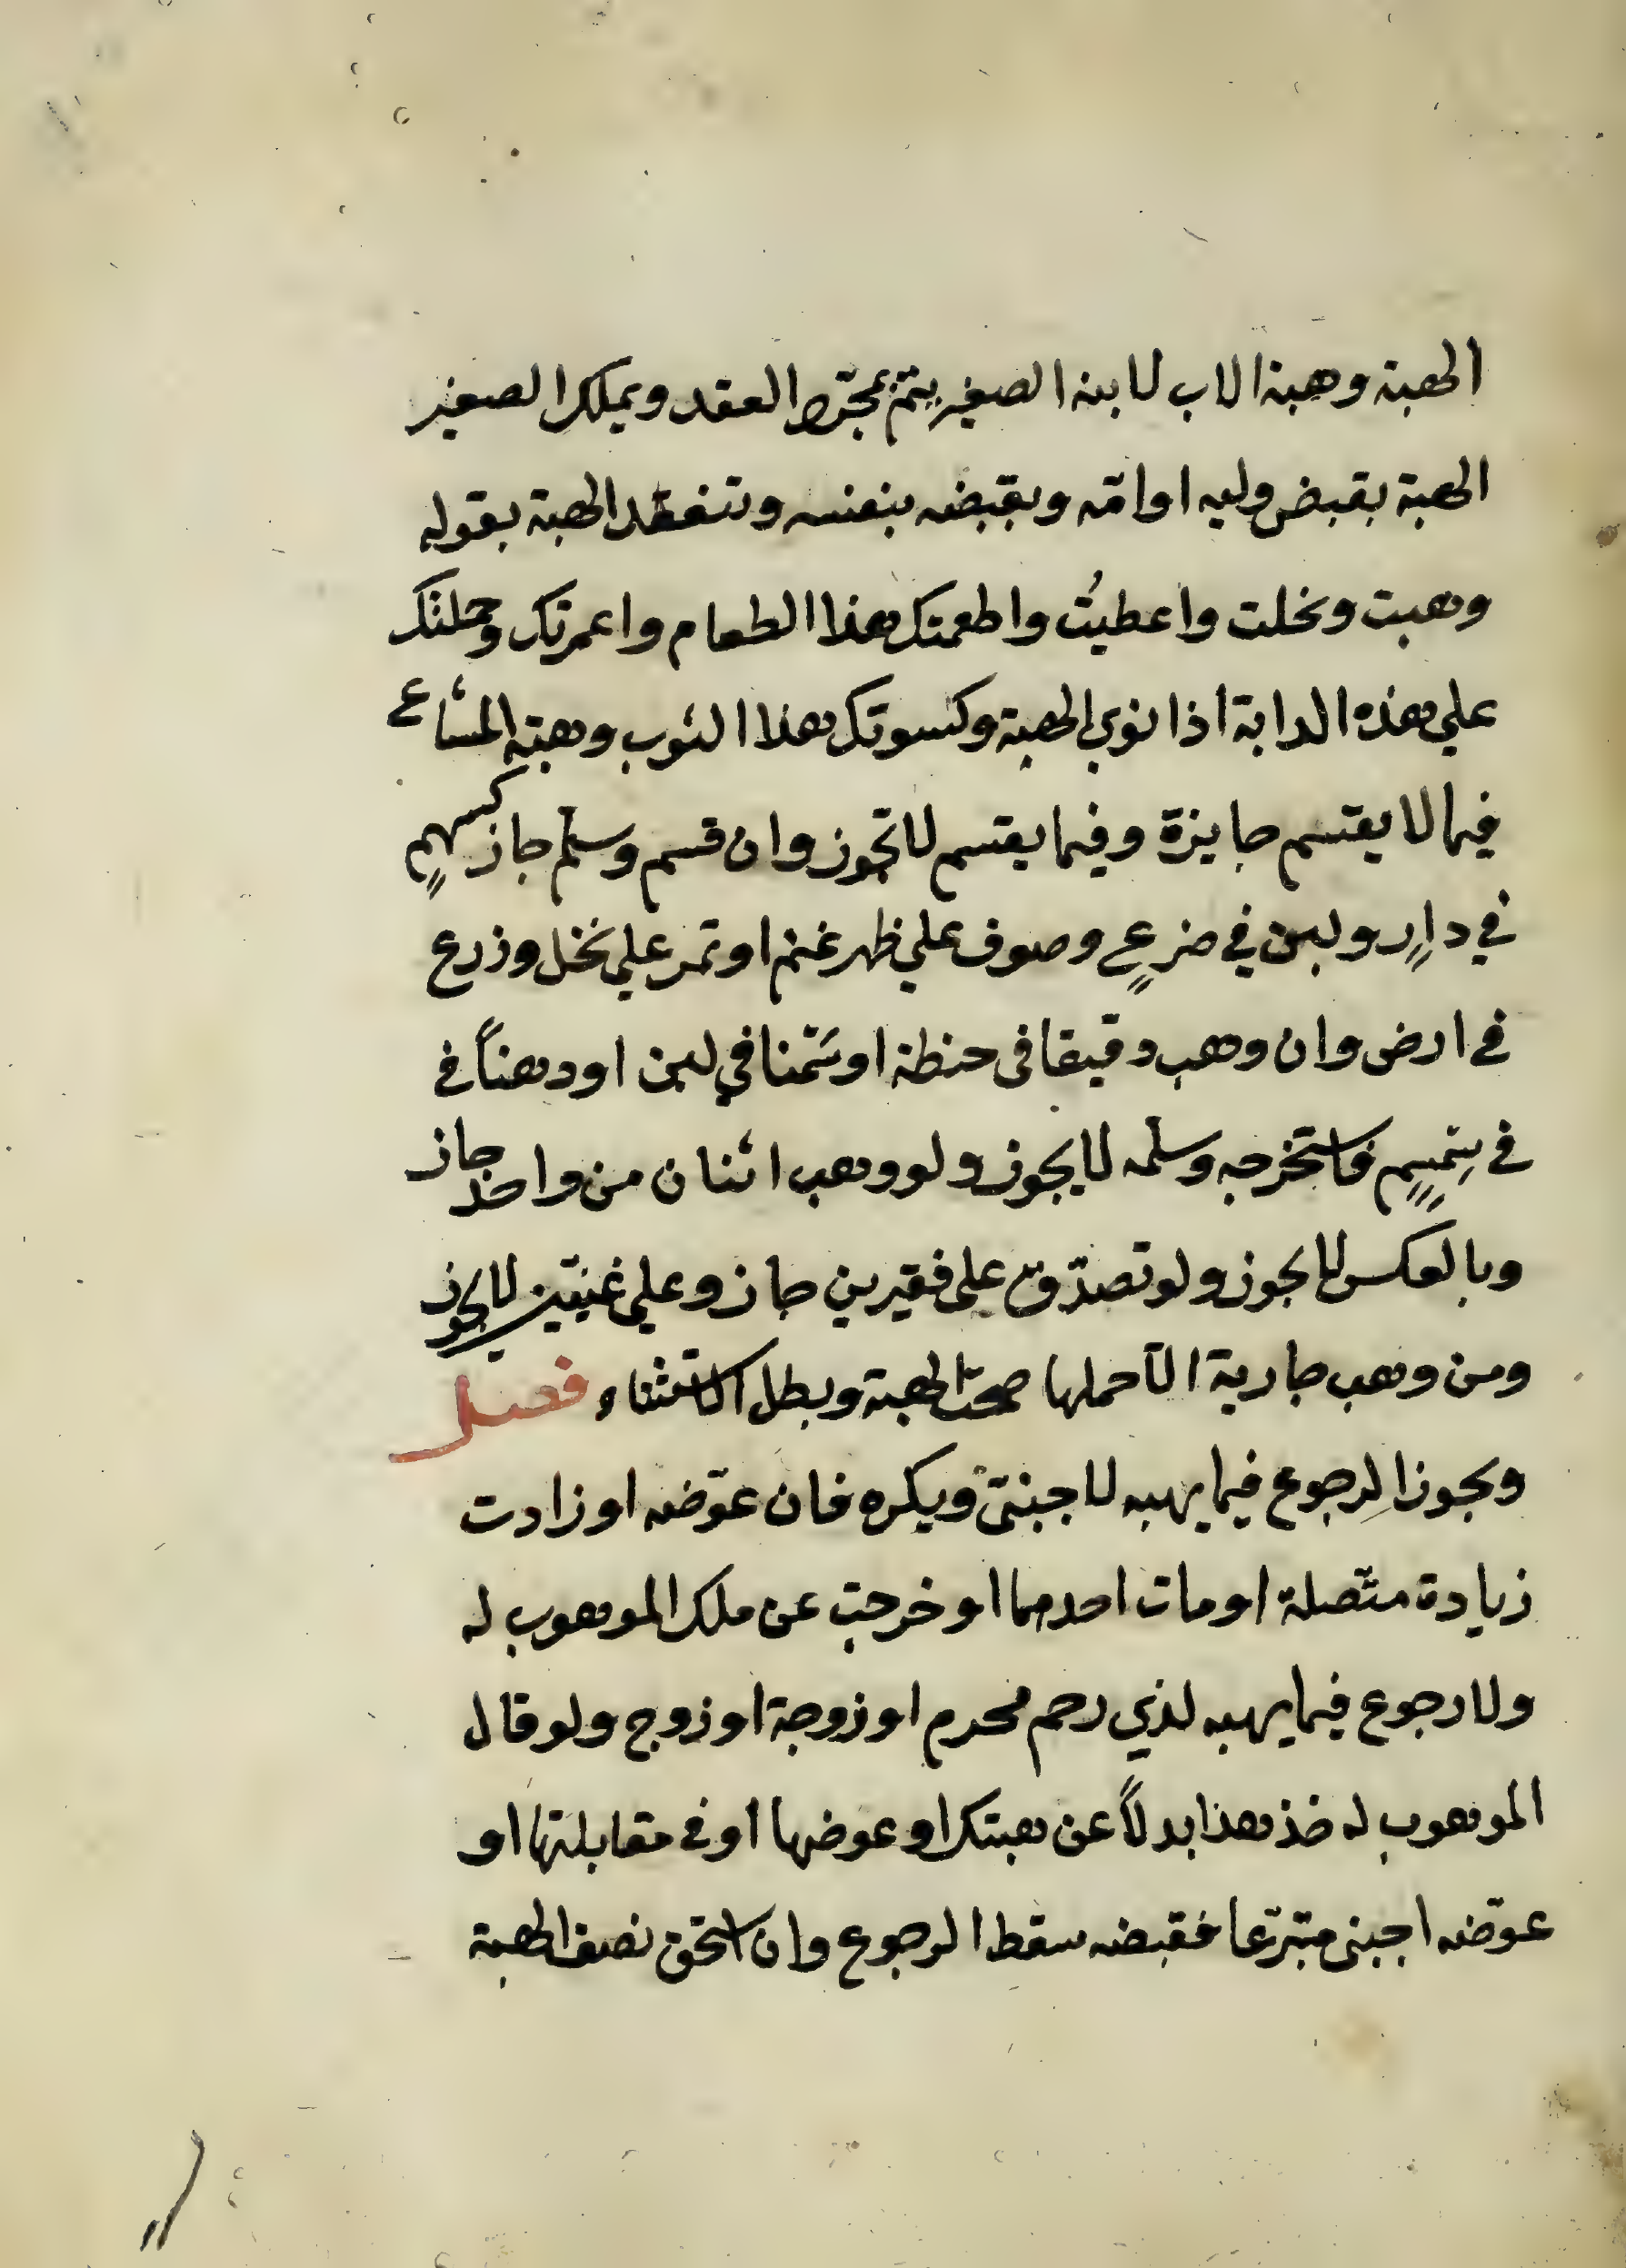 الهبة وهبة الاب لابنه الصغير يتمّ بمجرّد العقد ويملك الصغير
الهبة بقبض وليه او امّه وبقبضه بنفسه وتنعقد الهبة بقوله
وهبت ونحلت واعطيتُ واطعمتك هذا الطعام واعمرتك وحملتك
علي هذه الدابة اذا نوي الهبة وكسوتك هذا الثوب وهبة المشاع
فيما لا يقسم جايزة وفيما يقسم لا تجوز وان قسم وسلّم جاز كسهمٍ
في دارٍ ولبن في ضرعٍ وصوف علي ظهر غنم او تمر علي نخل وزرع
في ارض وان وهب دقيقا في حنطة او سَمنا في لبن او دهناً في
في سِمسِمٍ فاستخرجه وسلّمه لا يجوز ولو وهب اثنان من واحد جاز
وبالعكس لا يجوز ولو تصدّق على فقيرين جاز وعلي غنيّين لا يجوز
ومن وهب جارية الّا حملها صحّت الهبة وبطل الاستثناء فصل
ويجوز الرجوع فيما يهبه للاجنبيّ ويكره فان عوّضه او زادت
زيادة متّصلة او مات احدهما او خرجت عن ملك الموهوب له
ولا رجوع فيما يهبه لذي رحم محرم او زوجة او زوج ولو قال
الموهوب له خذ هذا بدلاً عن هبتك او عوضها او في مقابلتها او
عوّضه اجنبي متبرّعا فقبضه سقط الرجوع وان استحق نصف الهبة